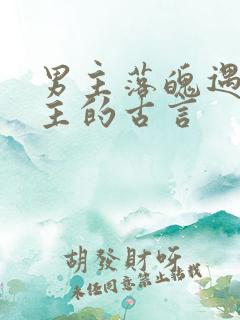 男主落魄遇
主的古言
胡發財呀
未經同意禁止轉載